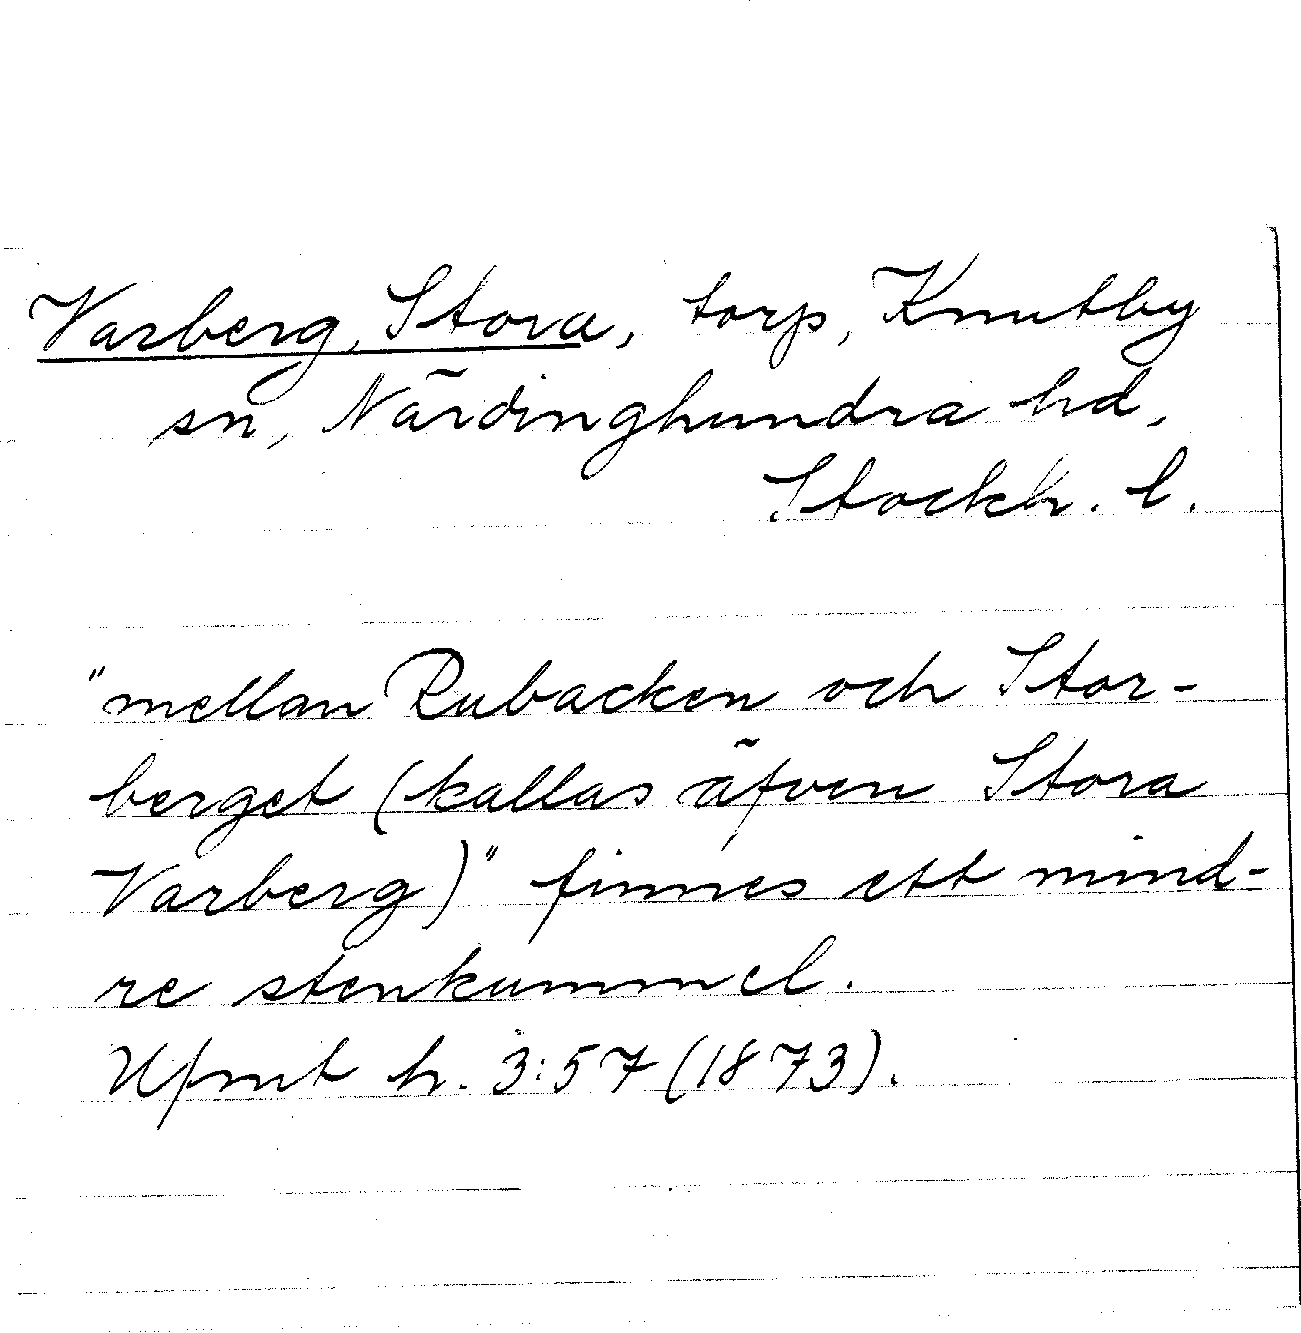 Varberg, Stora, torp, Knutby
sn, Närdinghundra hd,
Stockh. l.
"mellan Rubacken och Stor-
berget (kallas äfven Stora
Varberg)" finnes ett mind-
re stenkummel.
Upmt h. 3:57 (1873).